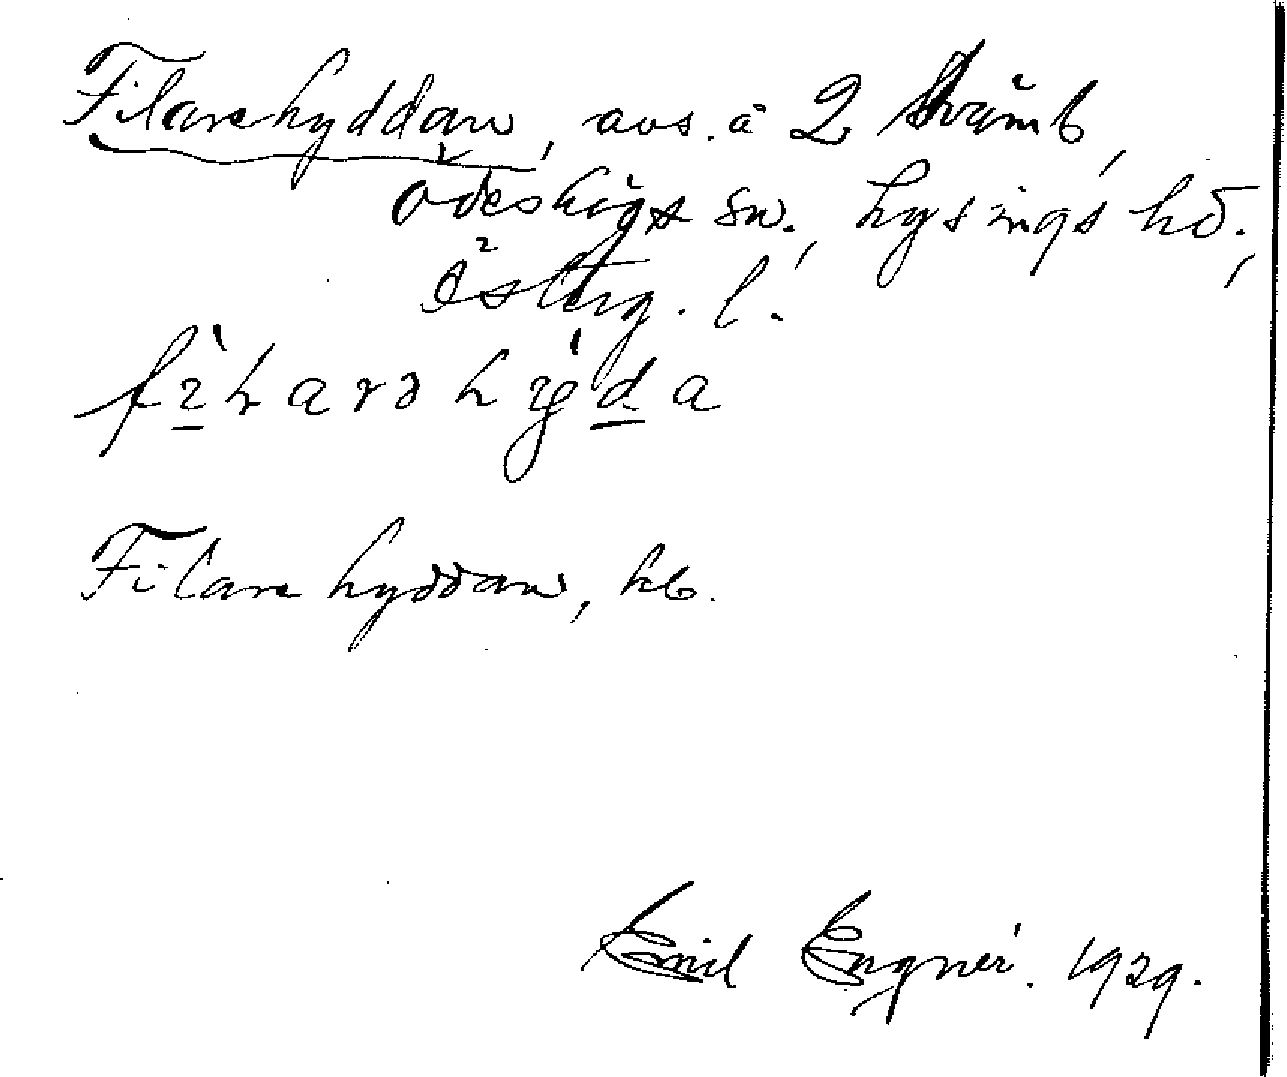 Filarehyddan, avs. å 2 Strömb,
Ödeshögs sn., Lysings hd.,
Österg. l.
Filarehyddan, hb.
Emil Engnér. 1929.